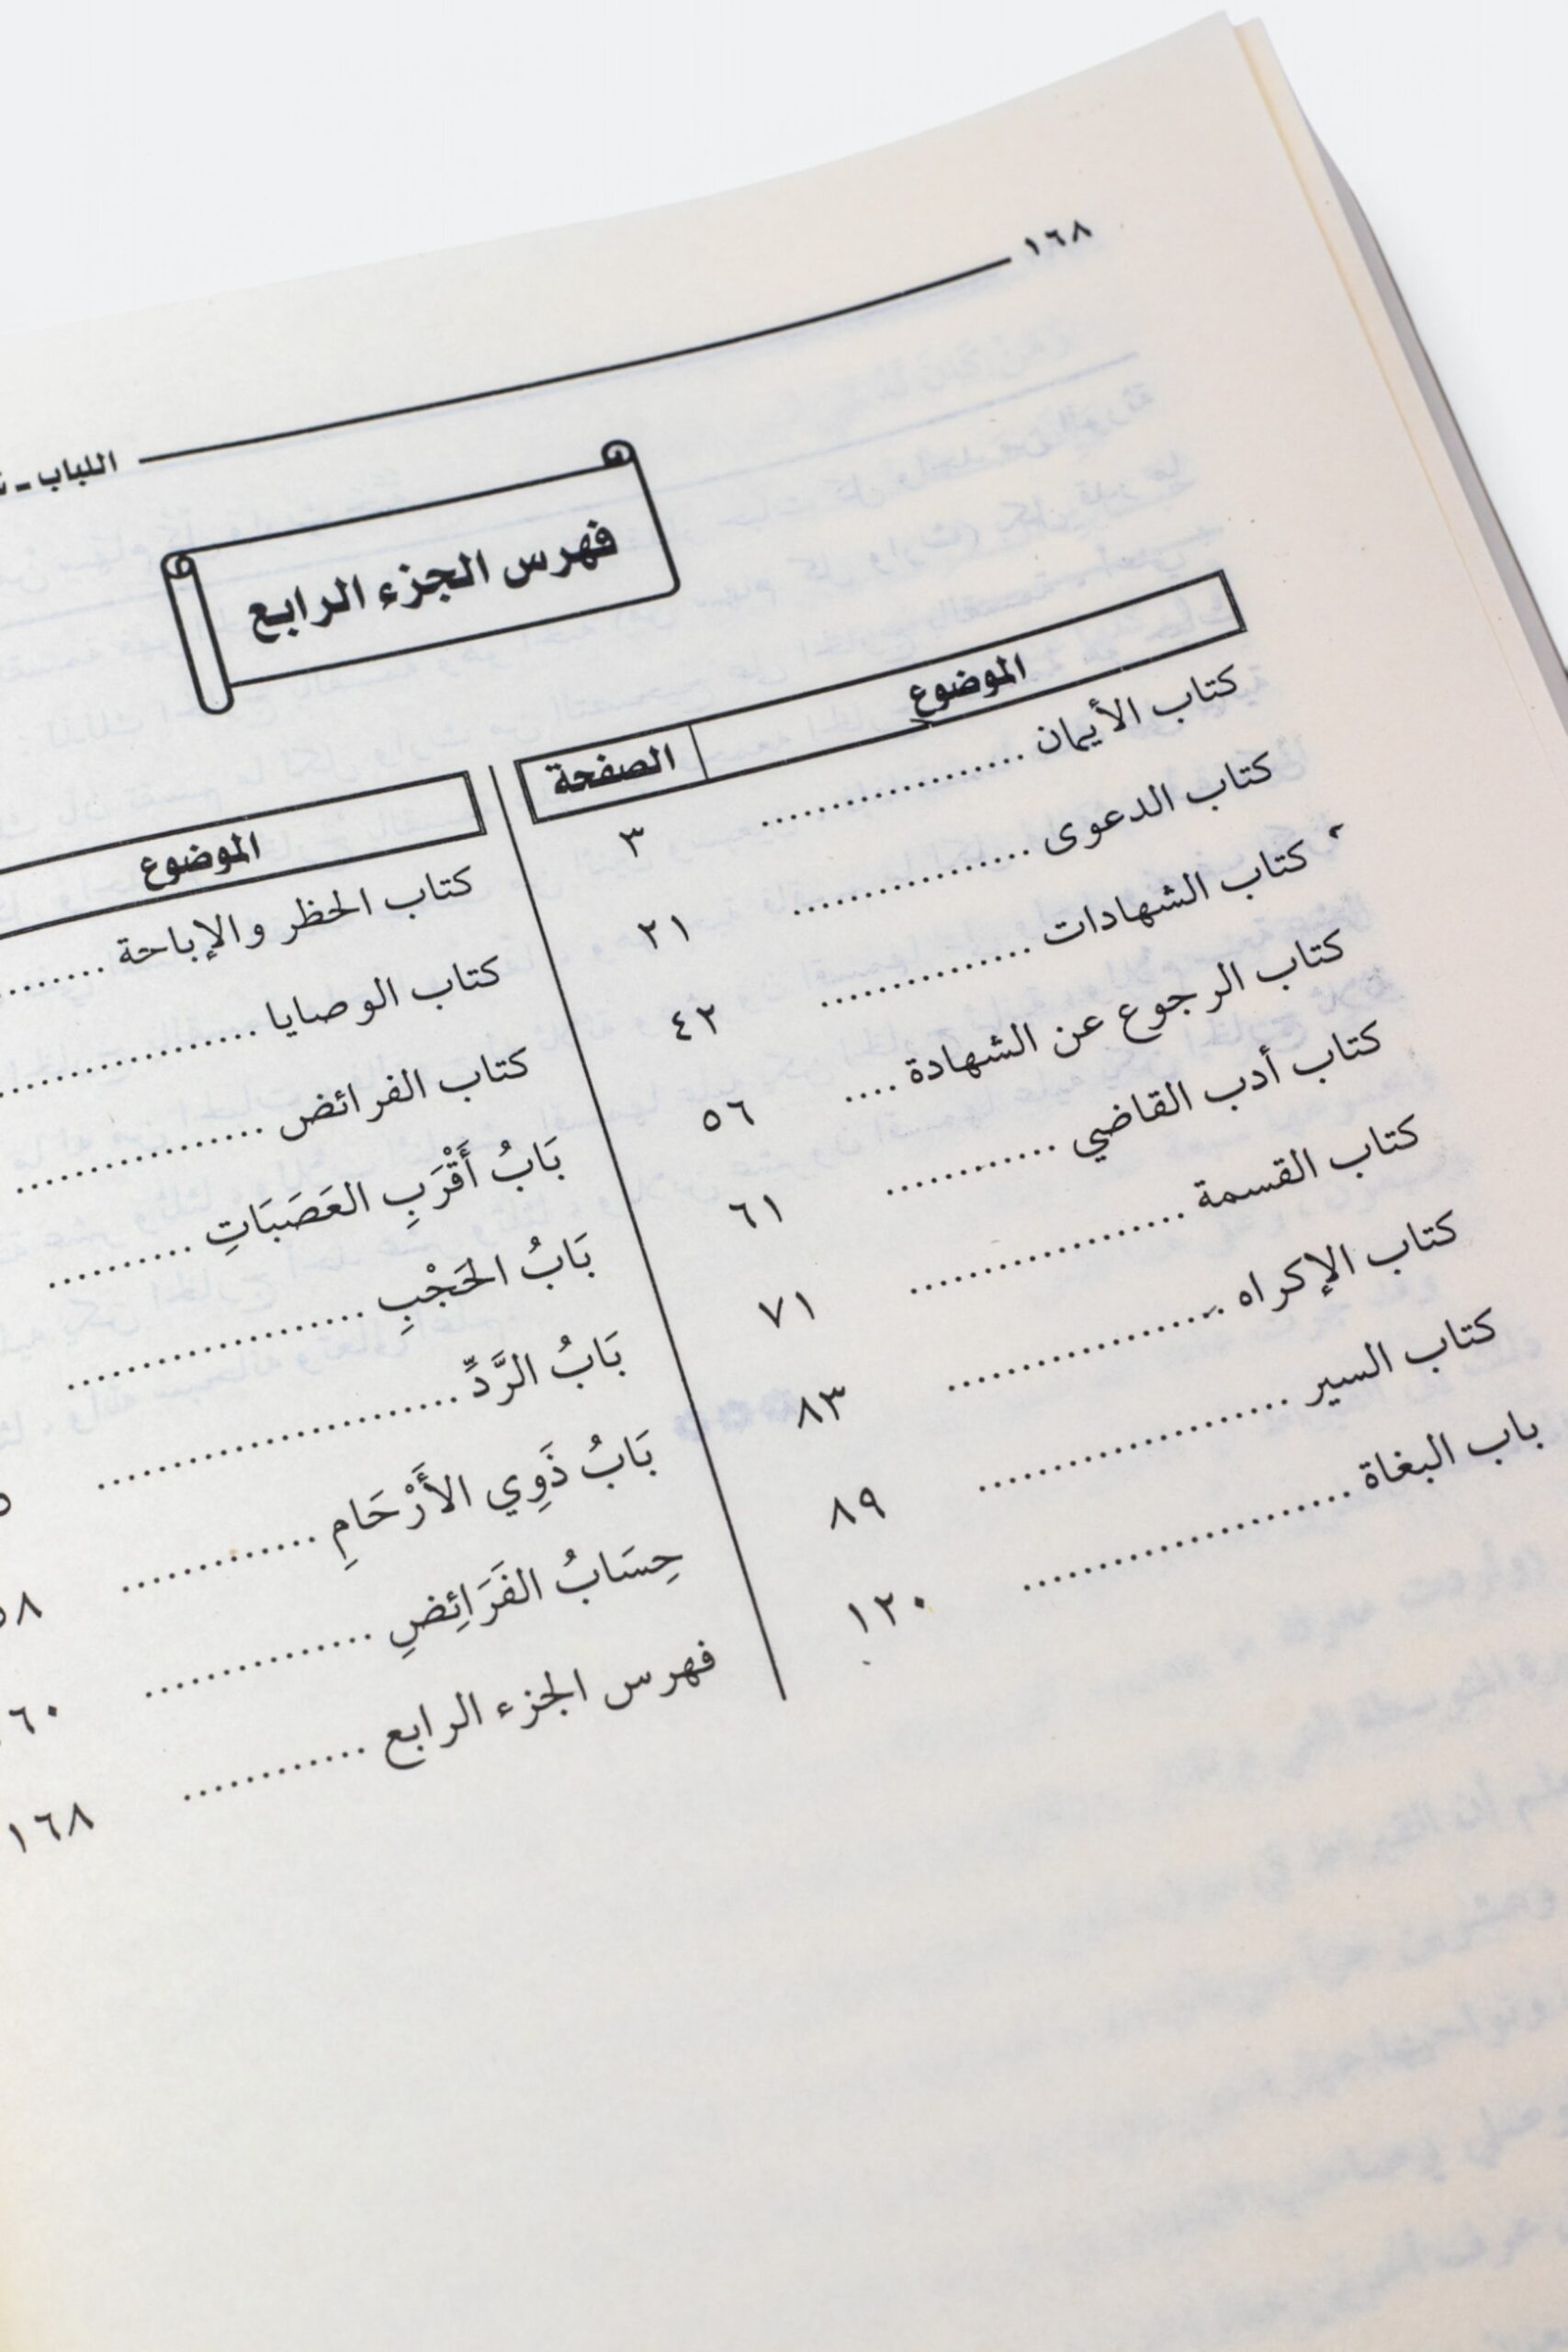 ١٦٨
اللباب ـ
فهرس الجزء الرابع
الموضوع الصفحة
كتاب الأيمان ................... ٣
كتاب الدعوى ................ ٢١
كتاب الشهادات ............... ٤٢
كتاب الرجوع عن الشهادة .... ٥٦
كتاب أدب القاضي ............ ٦١
كتاب القسمة ................... ٧١
كتاب الإكراه ................... ٨٣
كتاب السير ..................... ٨٩
باب البغاة ....................... ١٢٠
الموضوع
كتاب الحظر والإباحة ........
كتاب الوصايا ..................
كتاب الفرائض .................
بَابُ أَقْرَبِ العَصَبَاتِ ..........
بَابُ الحَجْبِ .....................
بَابُ الرَّدِّ .........................
بَابُ ذَوِي الأَرْحَامِ ..............
حِسَابُ الفَرَائِضِ ................
فهرس الجزء الرابع ............. ١٦٨